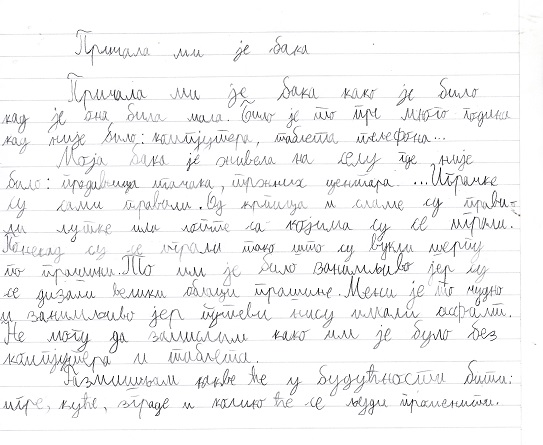 Причала ми је бака
Причала ми је бака како је било
кад је она била мала. Било је то пре много година
кад није било: компјутера, таблета телефона...
Моја бака је живела на селу где није
било: продавница играчака, тржних центара ... Играчке
су сами правили. Од крпица и сламе су прави-
ли лутке или лопте са којима су се играли.
Понекад су се играли тако што су вукли
по прашини. То им је било занимљиво јер су
се дизали велики облаци прашине. Мени је то чудно
и занимљиво јер путеви нису имали асфалт.
Не могу да замислим како им је було без
компјутера и таблета.
Размишљам какве ће у будућности бити:
игре, куће, зграде и колико ће се људи променити.